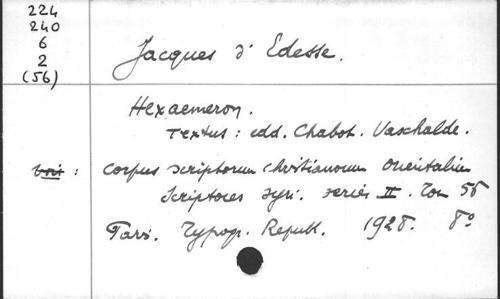 224
240
6
2
(56)
Jacques d'Edesse.
Hexaemeron.
Textus: edd. Chabot. Vaschalde.
voir: Corpus scriptorum christianorum Orientalium
Scriptores syri. series II. Tom 56
Paris. Typogr. Republ. 1928. 8º